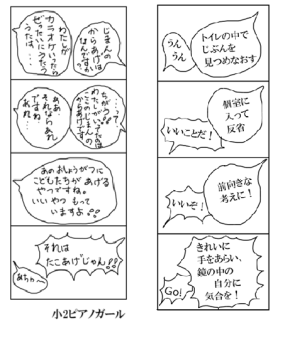 トイレの中で
じぶんを
見つめなおす
うん
うん
個室に
入って
反省
いいことだ!
前向きな
考えに!
いいぞ!
きれいに
手をあらい、
鏡の中の
自分に
気合を!
Go!
じまんの
からあげは
なんですか?
わたしが
カラオケいったら
ぜったいにうたう
うたは…
ちがう!
わたしがいってるのは
ここのじまんの
ああ…
それならあれ
ですね
あれ…
あのおしょうがつに
こどもたちが あげる
やつですね。
いい やつ もって
いますよ!!
それは
たこあげじゃん!!
あちゃ〜
小2ピアノガール